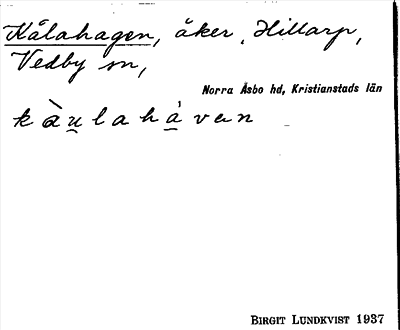 Kålahagen, åker, Hillarp,
Vedby sn,
Norra Åsbo hd, Kristianstads län
k à u̲ l a h a̲̍ v ɐ n
BIRGIT LUNDKVIST 1937